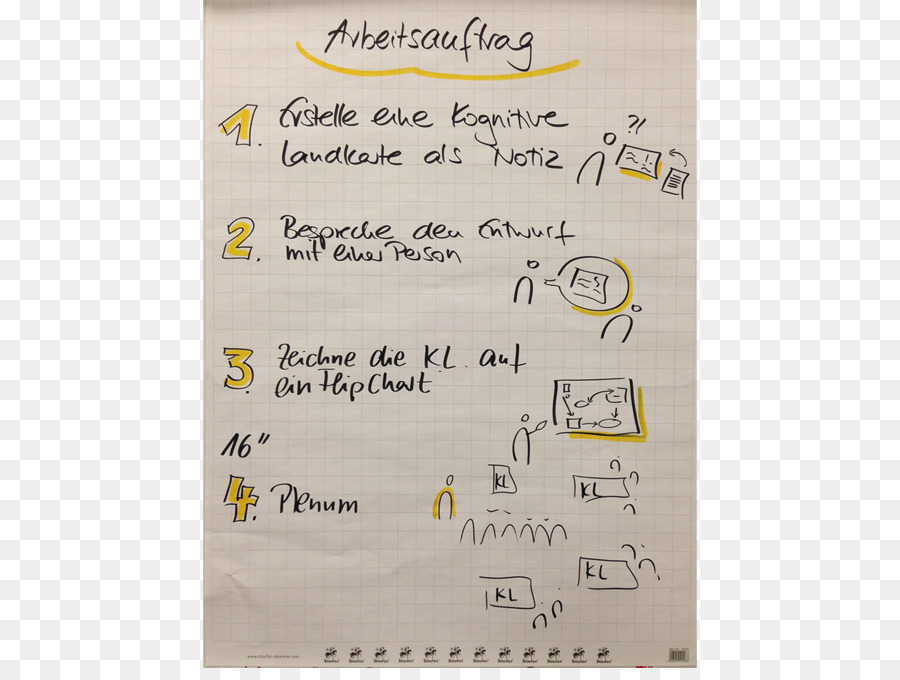 Arbeitsauftrag
1. Erstelle eine Kognitive
Landkarte als Notiz
?!
2. Bespreche den Entwurf
mit einer Person
3. Zeichne die KL. auf
ein FlipChart
16"
4. Plenum
KL
KL
KL
KL
www.staufen-demmler.com
Staufen Staufen Staufen Staufen Staufen Staufen Staufen Staufen Staufen Staufen Staufen Staufen